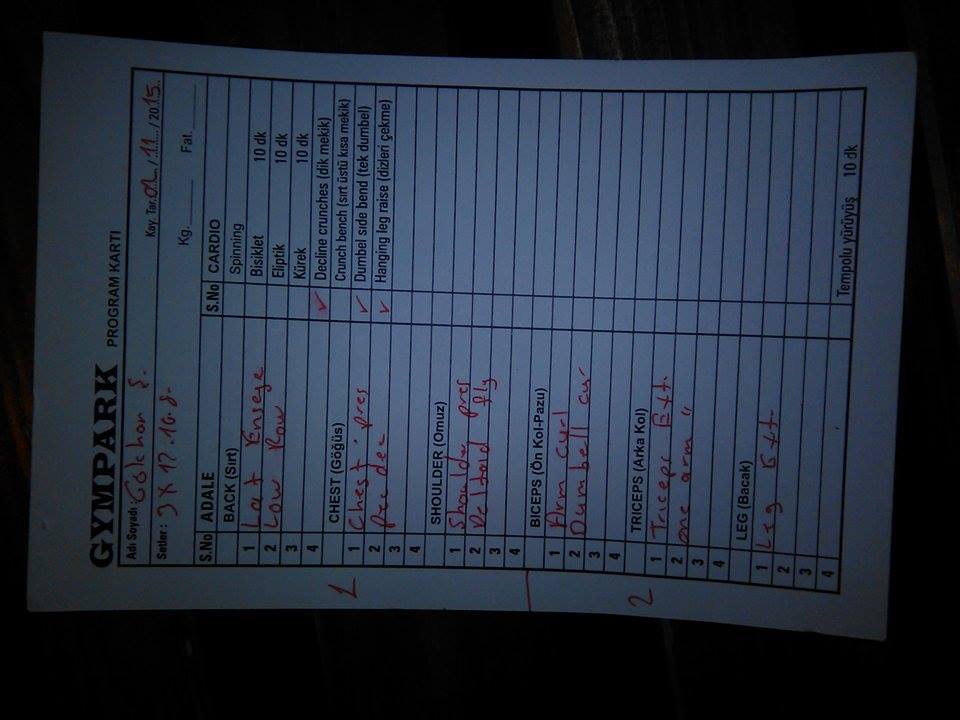 GYMPARK PROGRAM KARTI
Adı Soyadı: Gökhan S.
Kay. Tar. 02/11/2015.
Setler: 3x12.10.8.
Kg. Fat.
S.No ADALE S.No CARDIO
BACK (Sırt) Spinning
1 Lat Enseye Bisiklet 10 dk
2 Low Row Eliptik 10 dk
3 Kürek 10 dk
4 ✓ Decline crunches (dik mekik)
CHEST (Göğüs) Crunch bench (sırt üstü kısa mekik)
1 1 Chest pres ✓ Dumbel sıde bend (tek dumbel)
2 Pec dec ✓ Hanging leg raise (dizleri çekme)
3
4
SHOULDER (Omuz)
1 Shoulde pres
2 Deltoid fly
3
4
BICEPS (Ön Kol-Pazu)
1 Arm curl
2 Dumbell cur
3
4
2 TRICEPS (Arka Kol)
1 Triceps Ext.
2 one arm "
3
4
LEG (Bacak)
1 Leg Ext.
2
3
4 Tempolu yürüyüş 10 dk